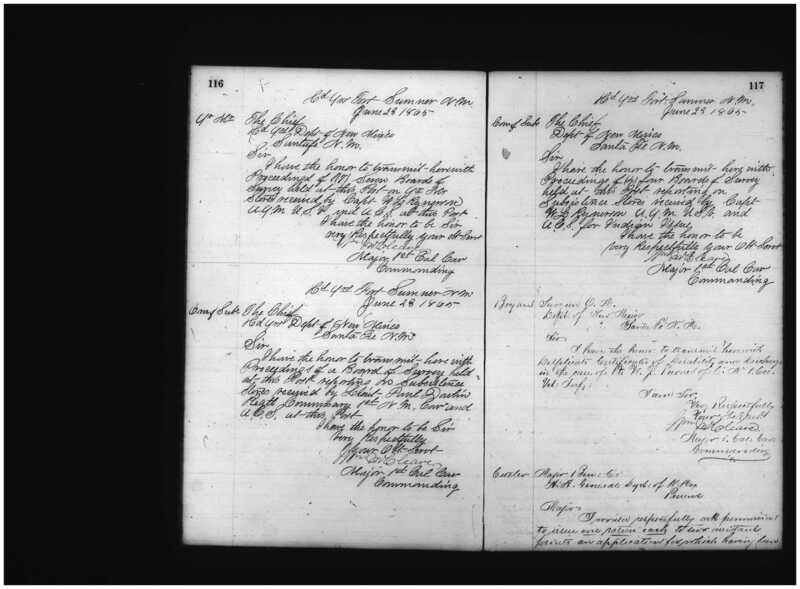 116
Hd Qrs Fort Sumner N.M.
June 28 1865
The Chief
Hd Qrs Dept of New Mexico
Santa Fe N.M.
Sir
I have the honor to transmit herewith
Proceedings of Seven Boards of
Survey held at this Post on
Stores received by Capt W. L. Rynerson
A.Q.M. U.S.V. and A.C.S. at this Post
I have the honor to be Sir
very Respectfully your Obt Servt
Wm McCleave
Major 1st Cal Cav
Commanding
Hd Qrs Fort Sumner N.M.
June 28 1865
Com of Sub The Chief
Hd Qrs Dept of New Mexico
Santa Fe N.M.
Sir
I have the honor to transmit here with
Proceedings of a Board of Survey held
at this Post reporting on Subsistence
Stores received by Lieut Paul
Regtl Commissary 1st N.M. Cav and
A.C.S. at this Post
I have the honor to be Sir
Very Respectfully
Your Obt Servt
Wm McCleave
Major 1st Cal Cav
Commanding
117
Hd Qrs Fort Sumner N.M.
June 28 1865
Com of Sub The Chief
Dept of New Mexico
Santa Fe N.M.
Sir
I have the honor to transmit here with
Proceedings of four Boards of Survey
held at this Post reporting on
Subsistence Stores received by Capt
W. L. Rynerson A.Q.M. U.S.V. and
A.C.S. for Indian Issue
I have the honor to be
Very Respectfully Your Obt Servt
Wm McCleave
Major 1st Cal Cav
Commanding
Surgeon
Dept. of New Mexico
Santa Fe N. M.
Sir
I have the honor to transmit herewith
Duplicate Certificates of disability and discharge
in the case of Pt
Inf.
I am Sir
Very Respectfully
Your Obt Servt
Wm McCleave
Major 1 Cal. Cav.
Commanding
Cutler Major
Dept. of N. Mex
Present
Major
I would respectfully ask permission
to issue one ration each to
an application for which having been